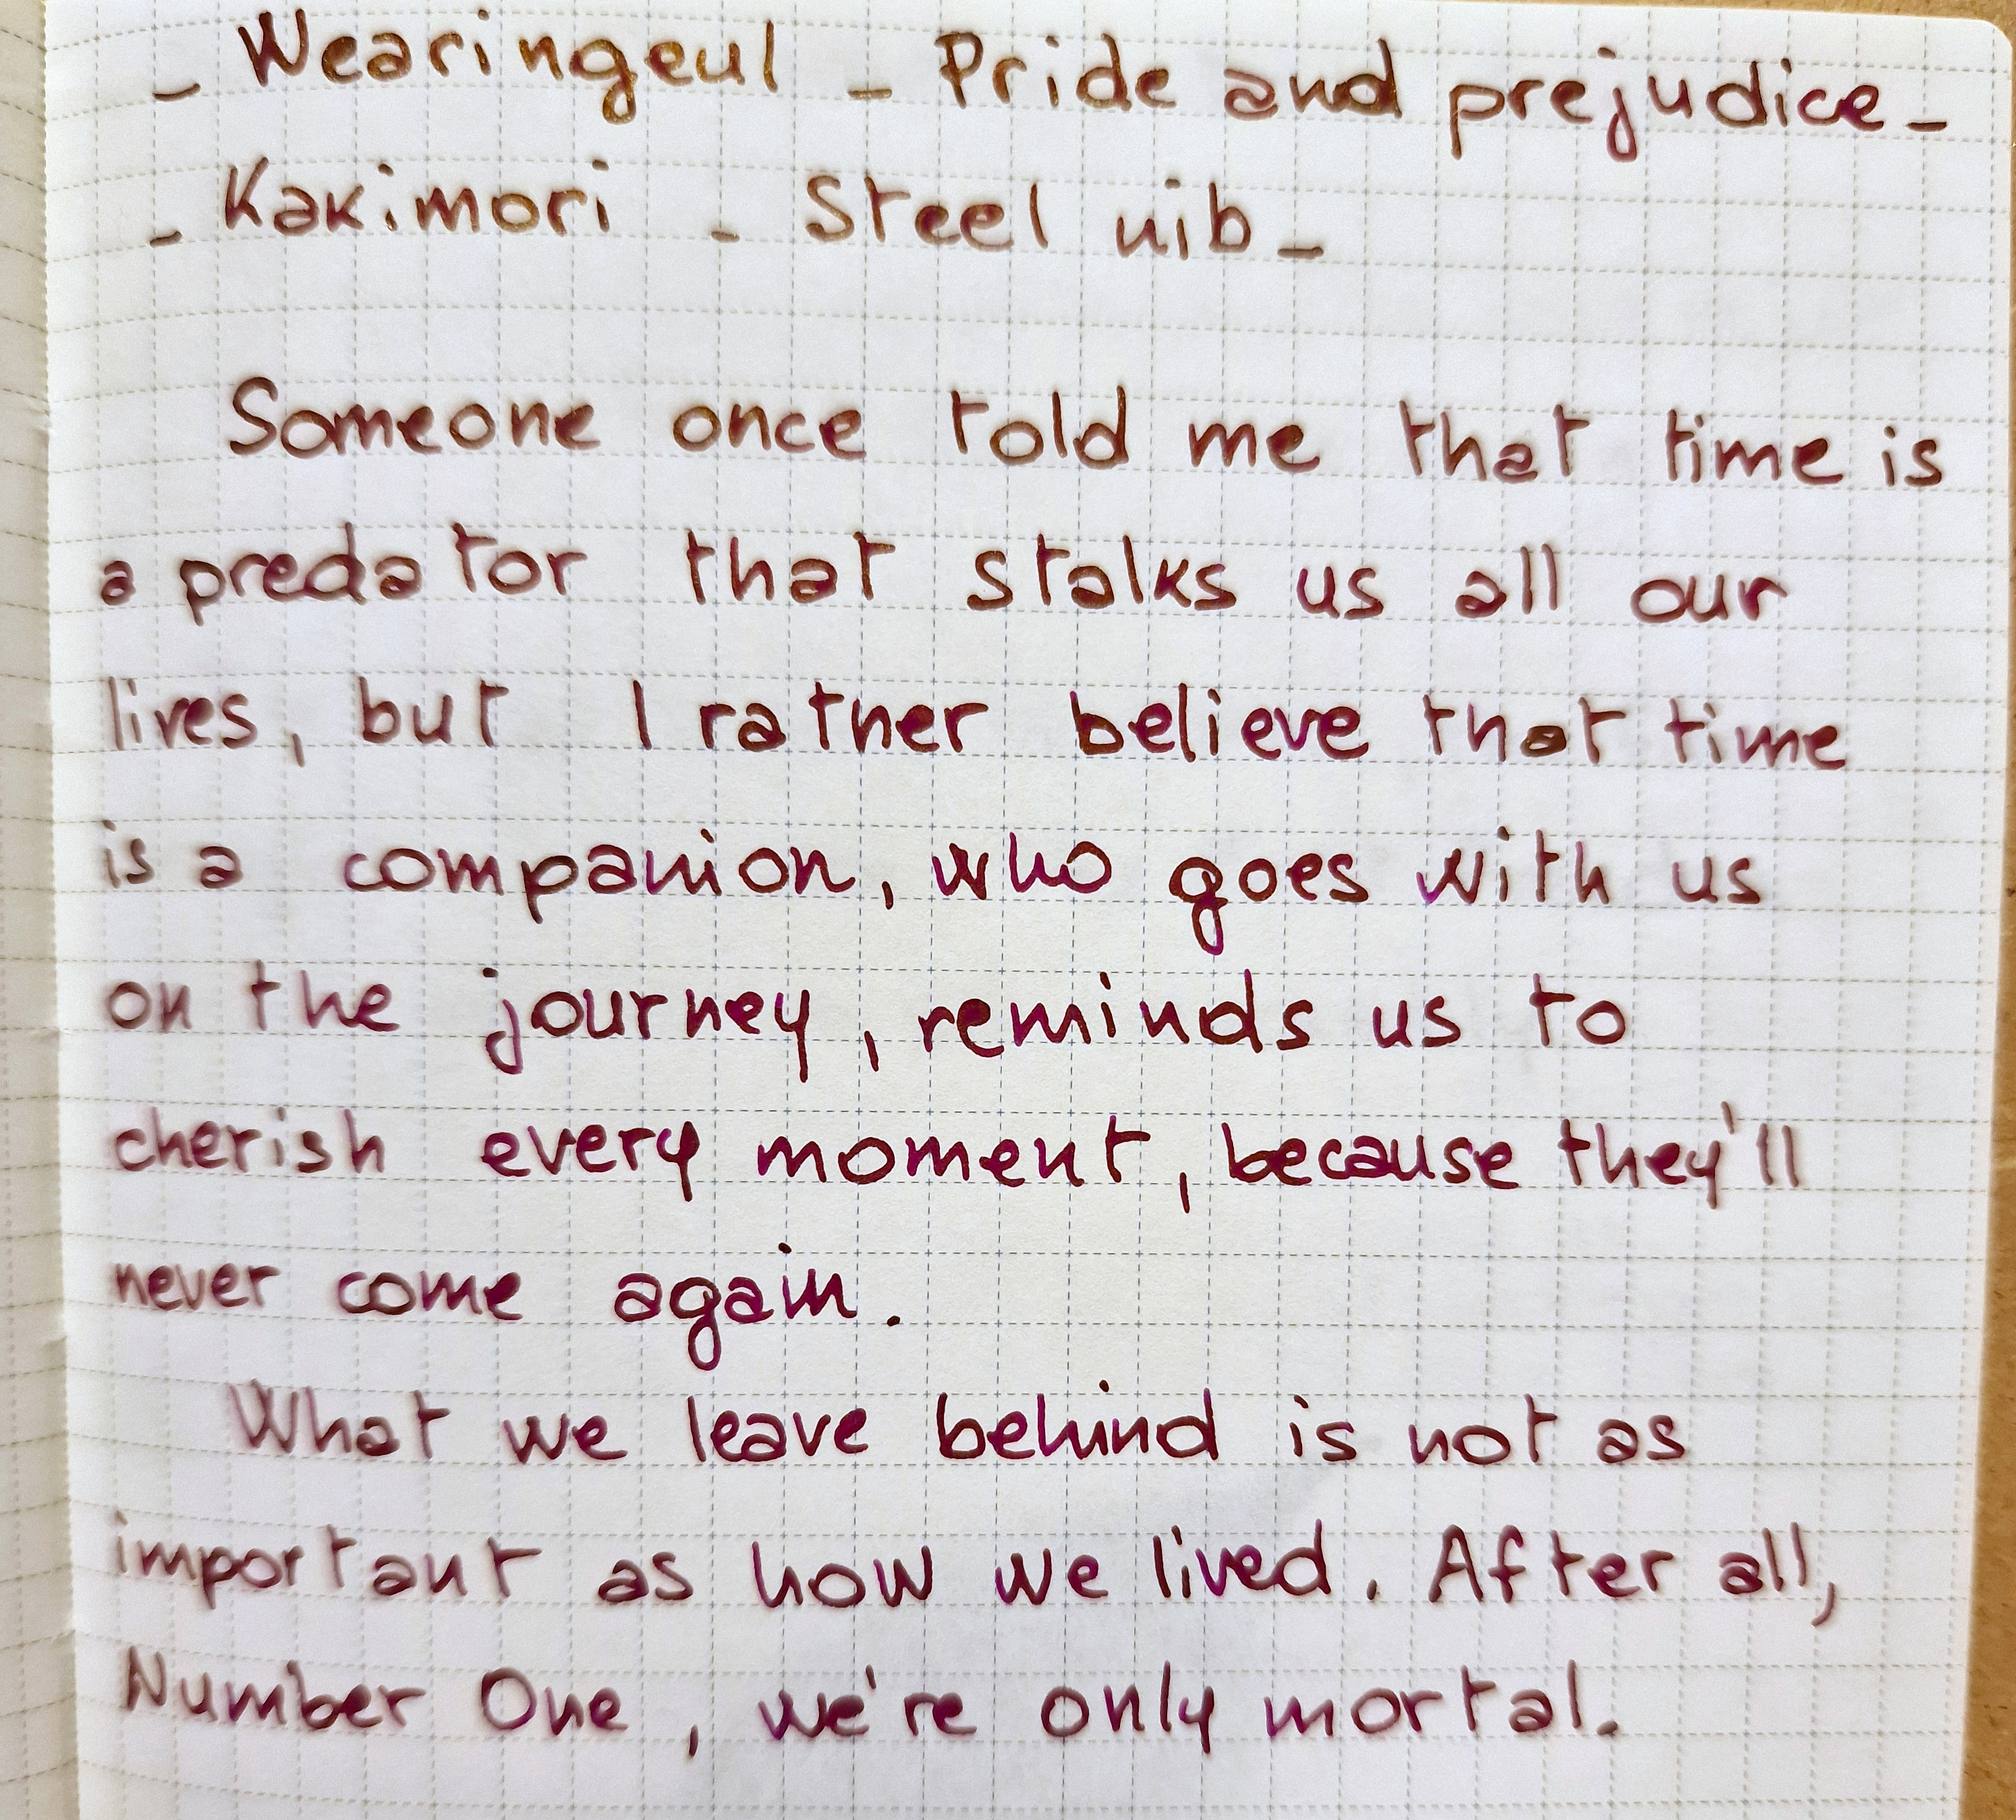 - Wearingeul - Pride and prejudice -
- Kakimori - Steel nib -
Someone once told me that time is
a predator that stalks us all our
lives, but I rather believe that time
is a companion, who goes with us
on the journey, reminds us to
cherish every moment, because they'll
never come again.
What we leave behind is not as
important as how we lived. After all,
Number One, we're only mortal.